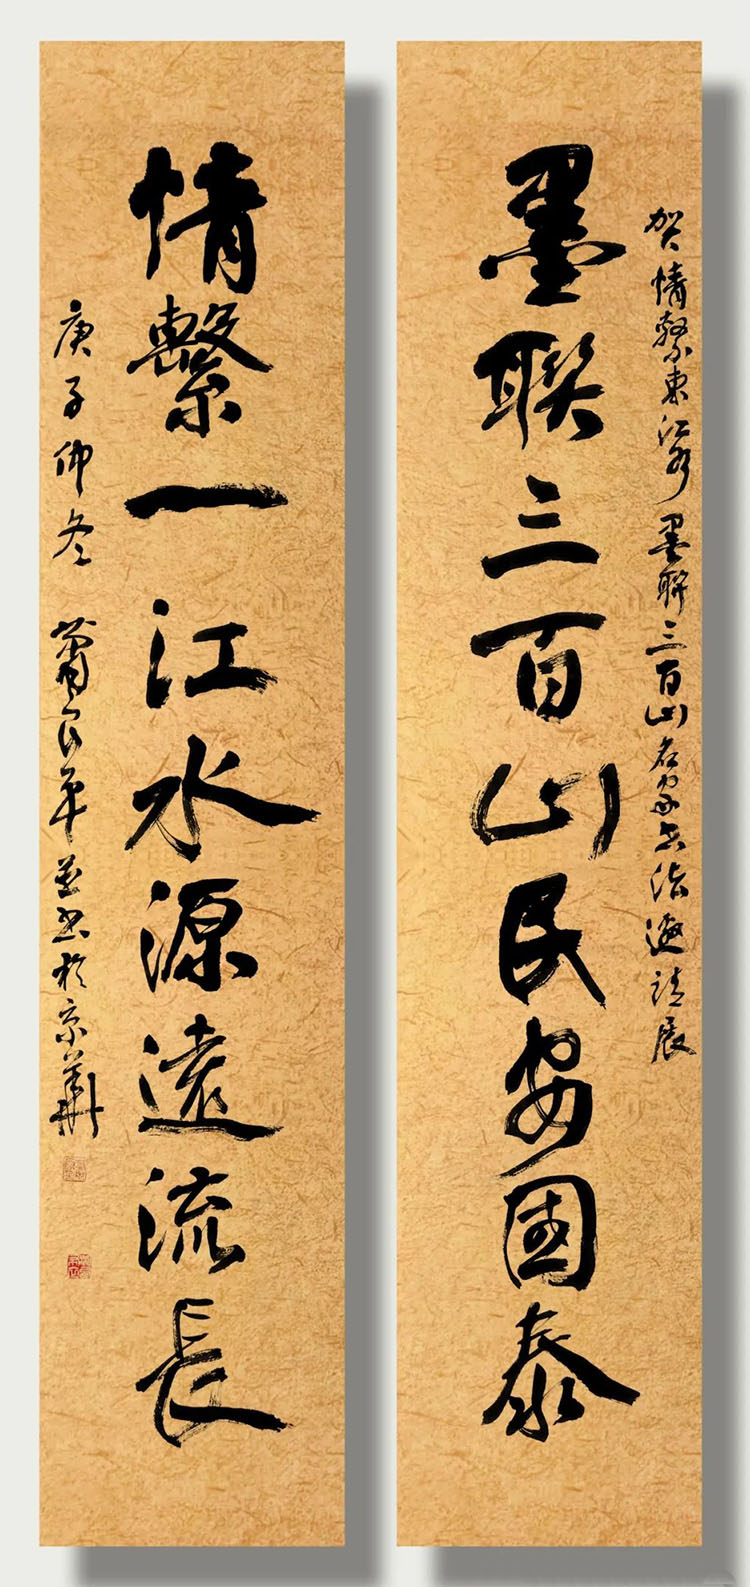 贺情繫東江水墨聯三百山名家书法邀請展
墨聯三百山民安國泰
情繫一江水源遠流長
庚子仲冬 蕭良平並书於京華